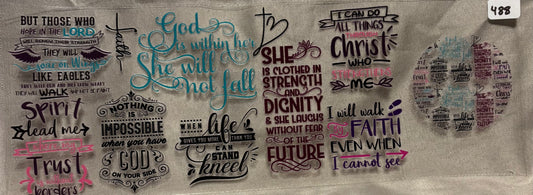 BUT THOSE WHO
HOPE IN THE LORD
WILL RENEW THEIR STRENGTH
THEY WILL
soar on Wings
LIKE EAGLES
THEY WILL RUN AND NOT GROW WEARY
THEY WILL WALK AND NOT BE FAINT
faith
God
is within her
She will
not fall
SHE
IS CLOTHED IN
STRENGTH
AND
DIGNITY
& SHE LAUGHS
WITHOUT FEAR
OF THE
FUTURE
I CAN DO
ALL THINGS
THROUGH
Christ
WHO
STRENGTHENS
ME
488
Spirit
lead me
Trust
borders
NOTHING IS
IMPOSSIBLE
when you have
GOD
ON YOUR SIDE
WHEN life
GIVES YOU MORE THAN YOU
CAN
STAND
kneel
I will walk
by FAITH
EVEN WHEN
I cannot see